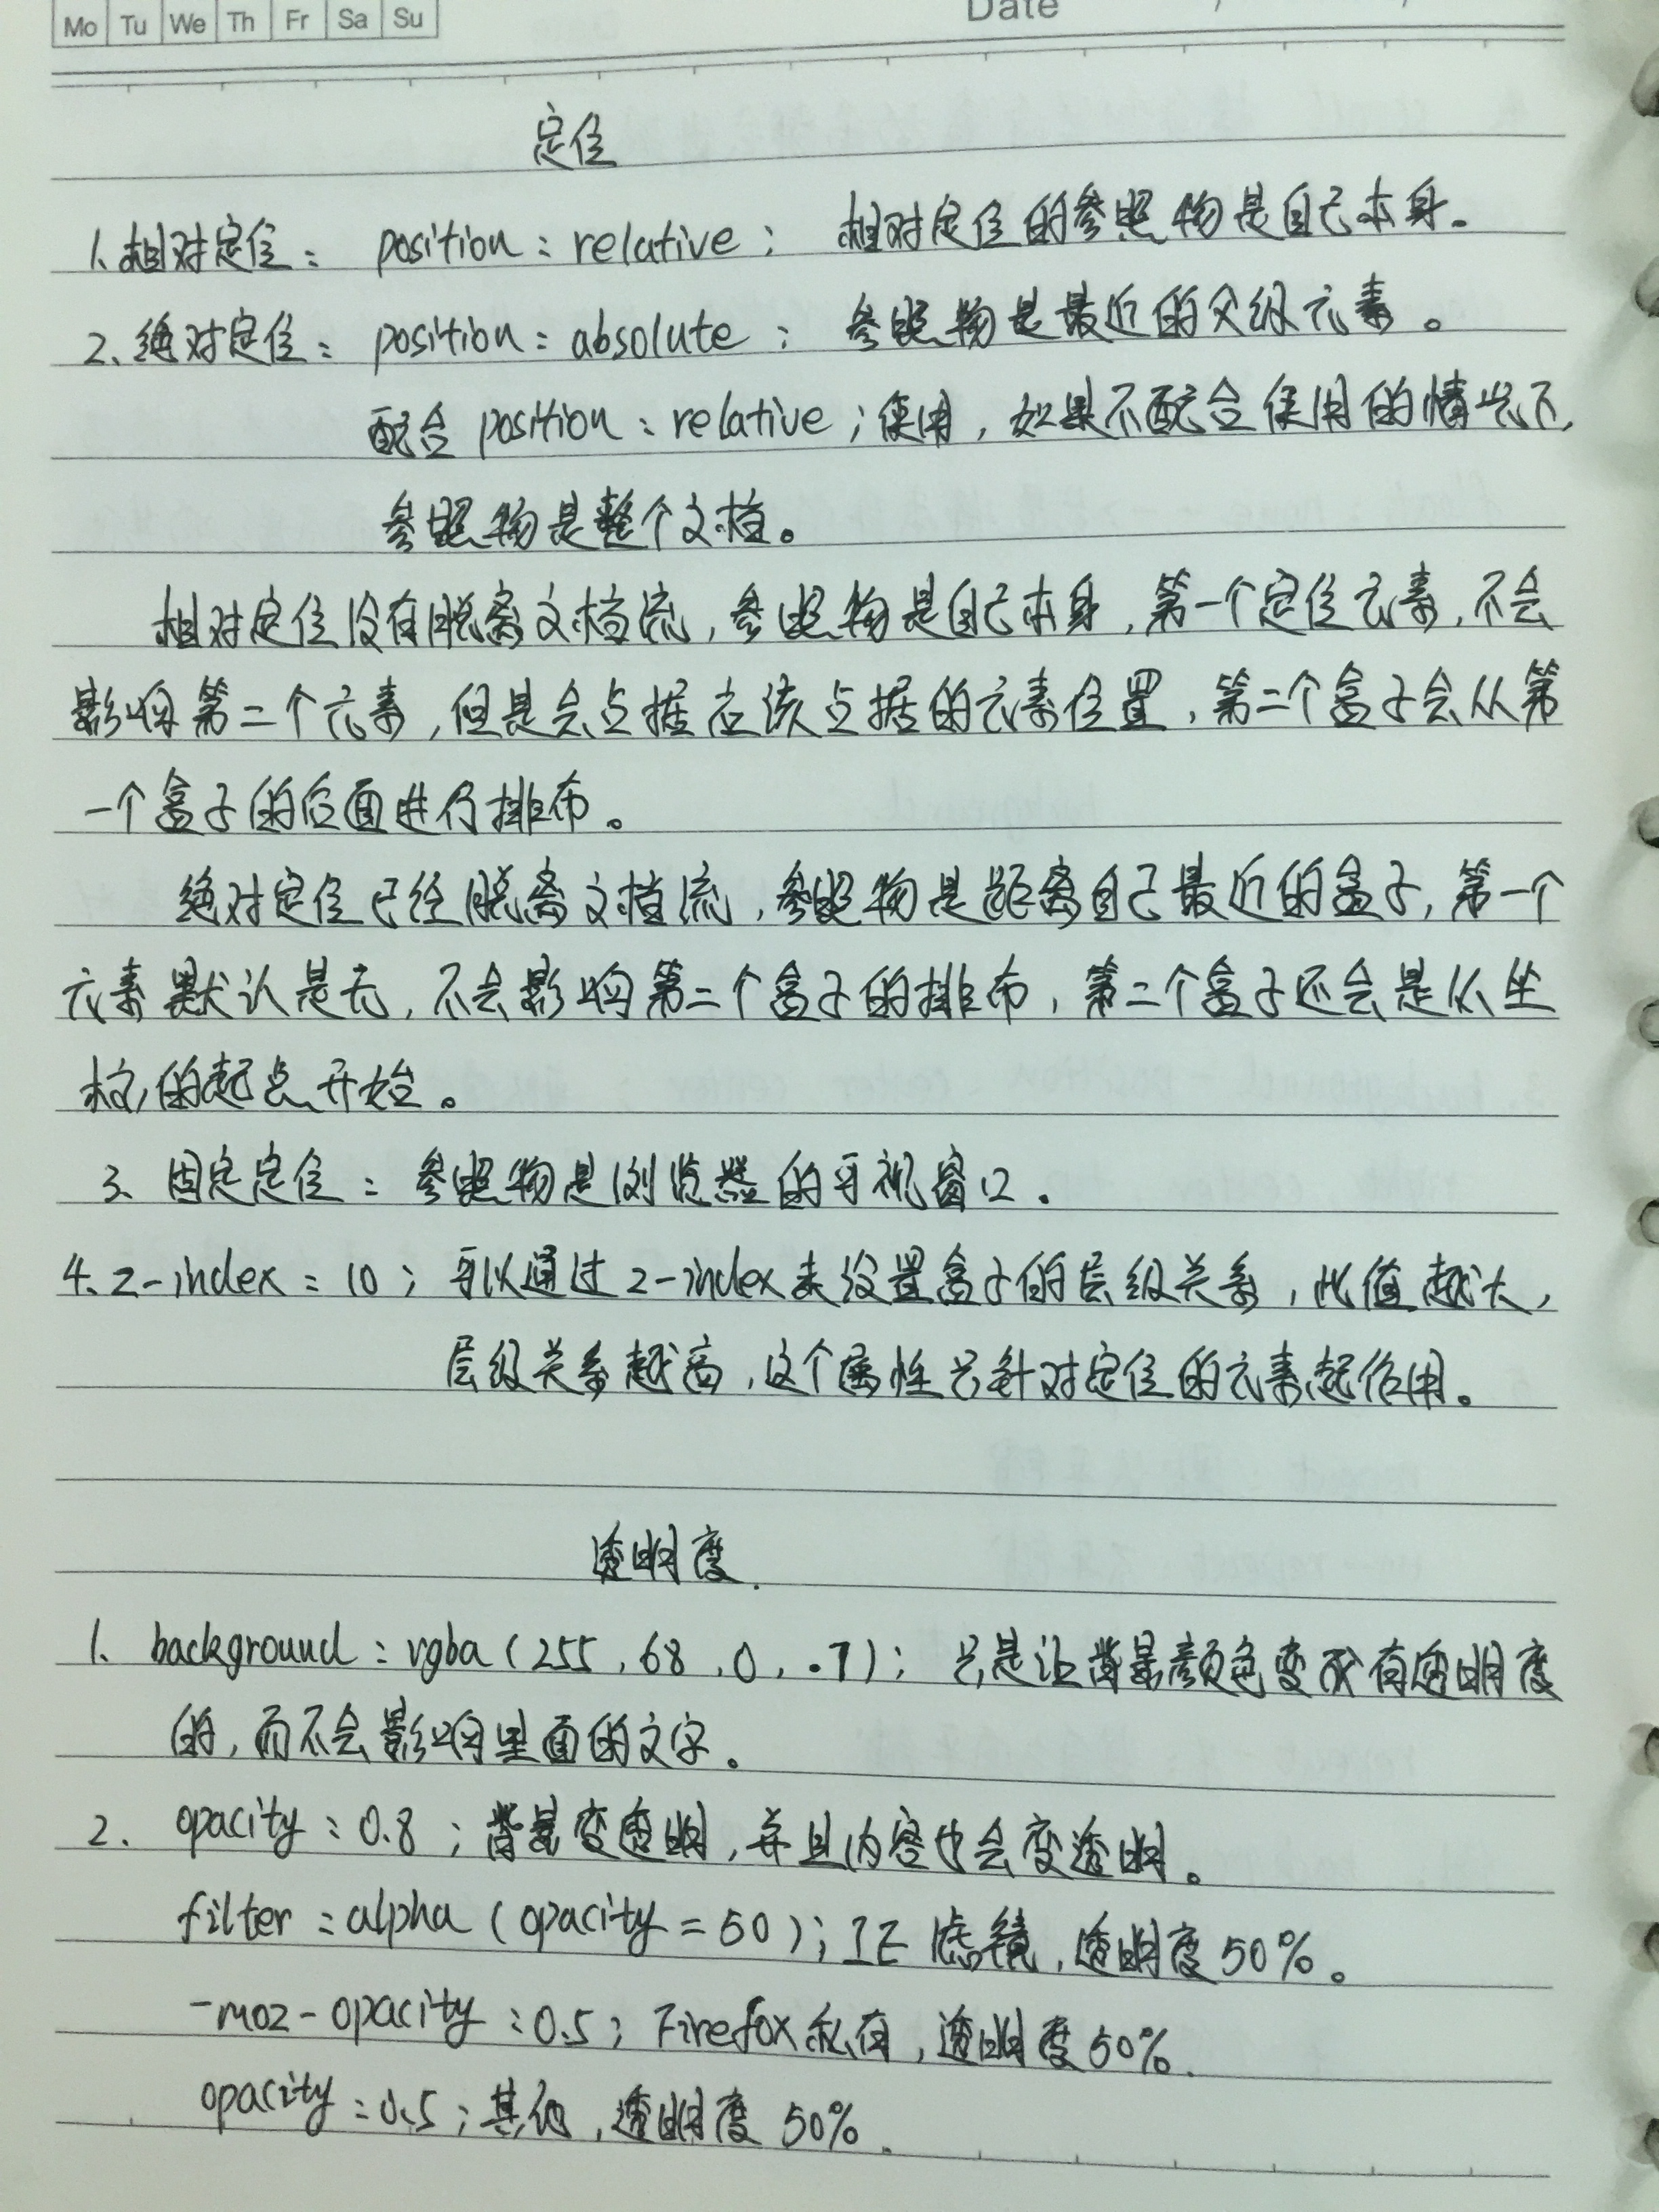 Mo Tu We Th Fr Sa Su Date
定位
1、相对定位： position：relative； 相对定位的参照物是自己本身。
2、绝对定位： position：absolute； 参照物是最近的父级元素。
配合 position：relative；使用，如果不配合使用的情况下，
参照物是整个文档。
相对定位没有脱离文档流，参照物是自己本身，第一个定位元素，不会
影响第二个元素，但是会占据应该占据的元素位置，第二个盒子会从第
一个盒子的后面进行排布。
绝对定位已经脱离文档流，参照物是距离自己最近的盒子，第一个
元素默认是无，不会影响第二个盒子的排布，第二个盒子还会是从坐
标的起点开始。
3、固定定位：参照物是浏览器的可视窗口.
4、z-index：10；可以通过z-index来设置盒子的层级关系，此值越大，
层级关系越高，这个属性只针对定位的元素起作用。
透明度.
1、background：rgba（255，68，0，.7）；只是让背景颜色变成有透明度
的，而不会影响里面的文字。
2、opacity：0.8；背景变透明，并且内容也会变透明。
filter：alpha（opacity=50）；IE 滤镜，透明度50%。
-moz-opacity：0.5；Firefox私有，透明度50%.
opacity：0.5；其他，透明度 50%.